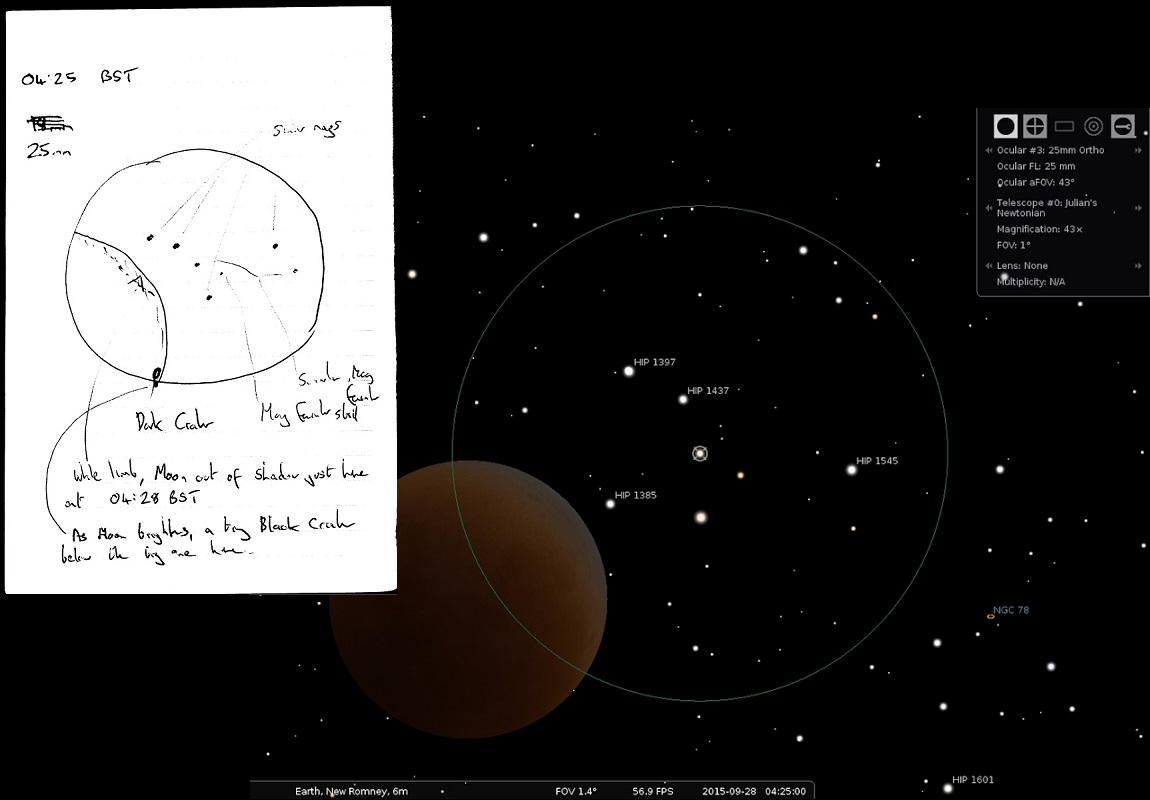 04:25 BST
25mm
Similar mags
Similar, Mag
fainter
Mag fainter still
Dark Crater
White limb, Moon out of shadow just here
at 04:28 BST
As Moon brightens, a tiny Black Crater
below the big one here.
Ocular #3: 25mm Ortho
Ocular FL: 25 mm
Ocular aFOV: 43°
Telescope #0: Julian's
Newtonian
Magnification: 43×
FOV: 1°
Lens: None
Multiplicity: N/A
HIP 1397
HIP 1437
HIP 1545
HIP 1385
NGC 78
HIP 1601
Earth, New Romney, 6m FOV 1.4° 56.9 FPS 2015-09-28 04:25:00